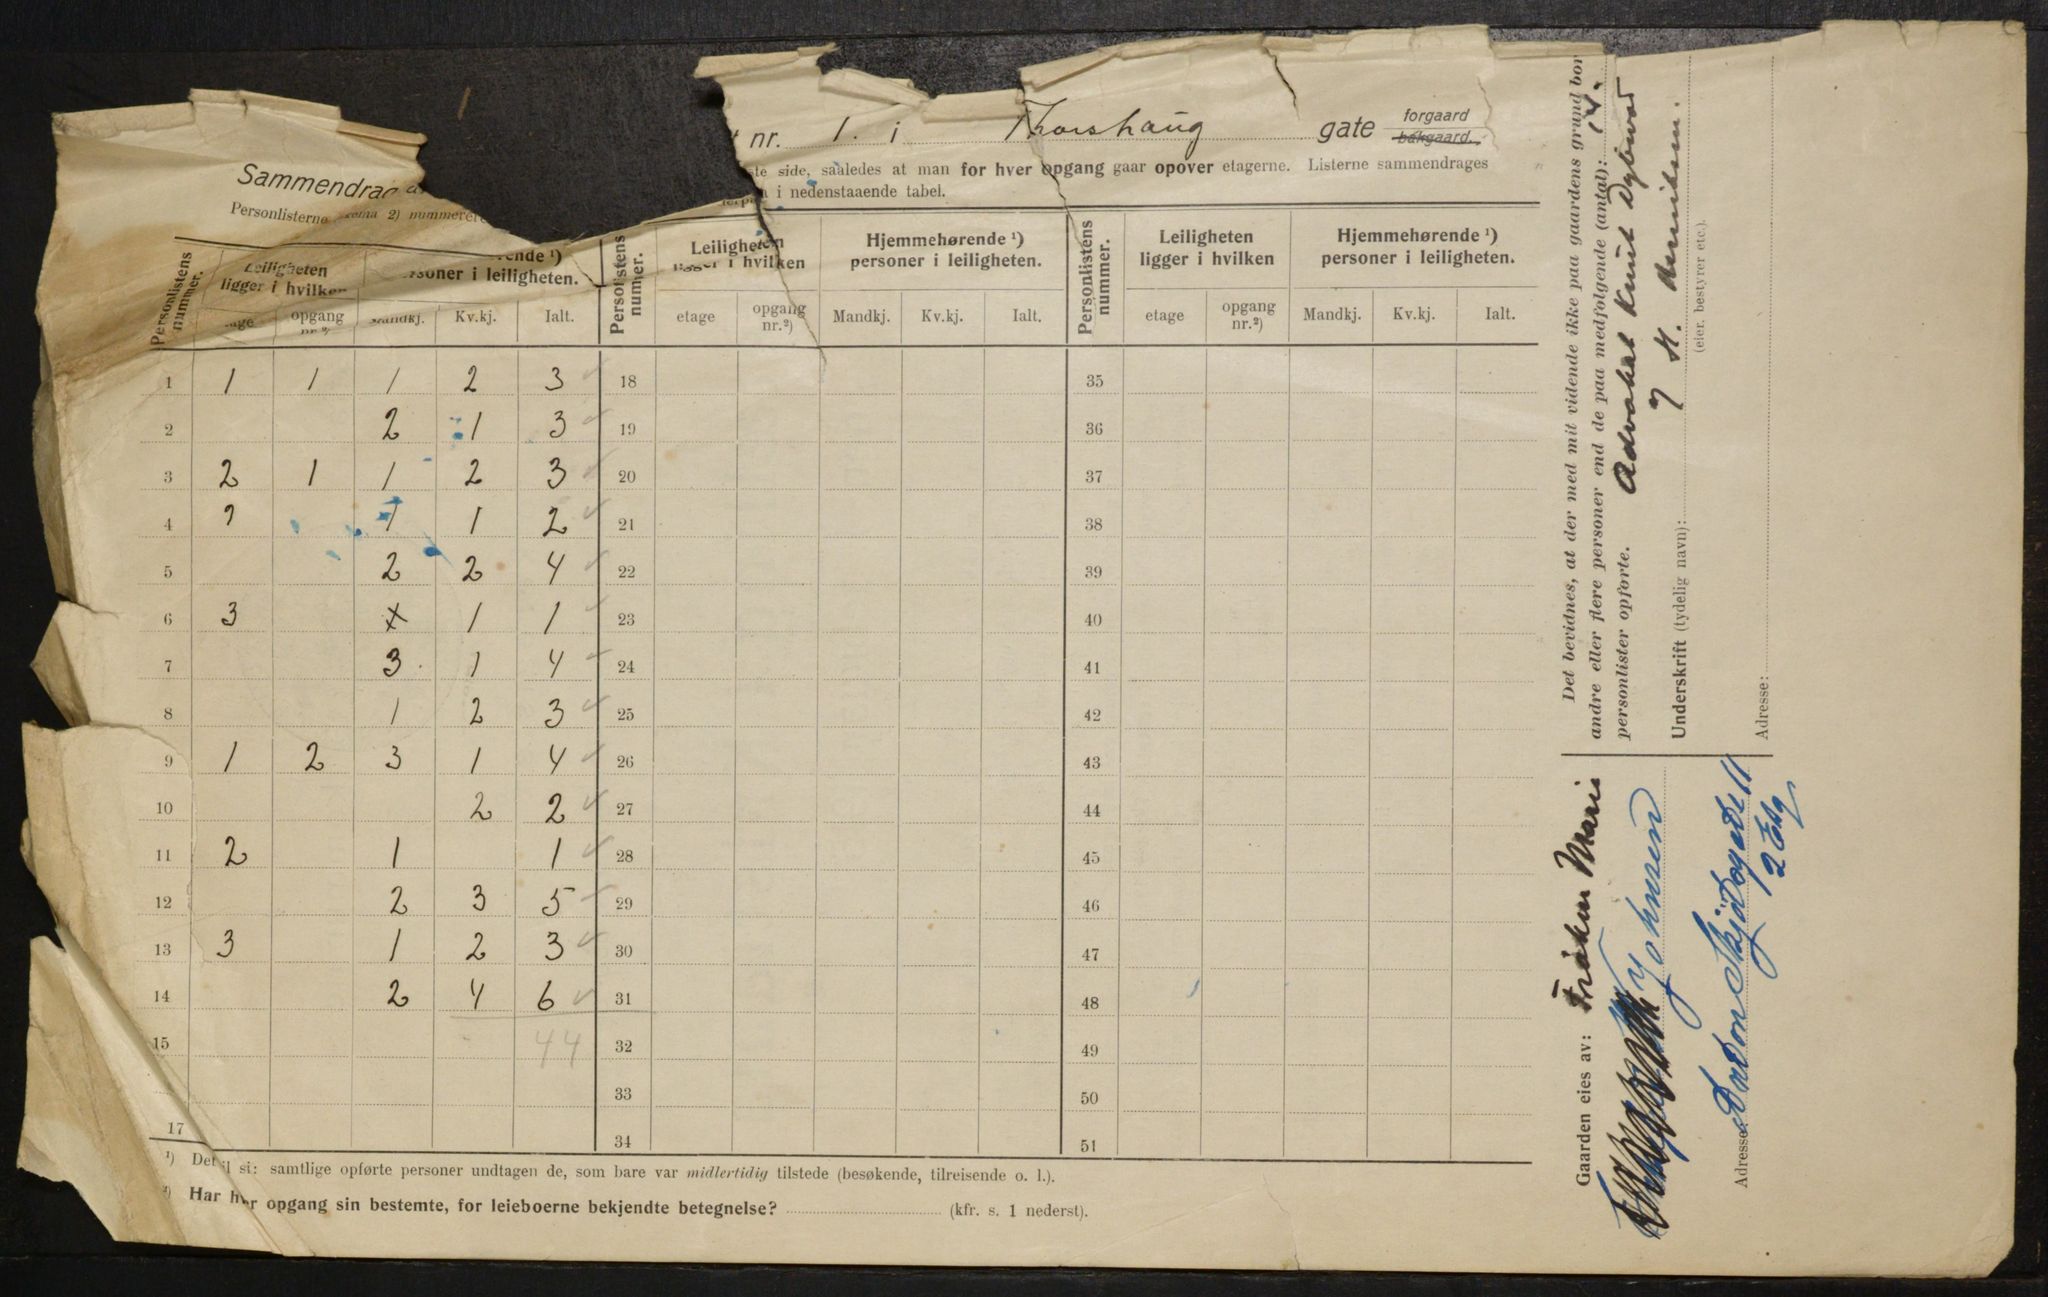 nr. 1. i Thorshaug gate forgaard bakgaard.
Sammendrag
Personlisterne (skema 2) nummereres
side, saaledes at man for hver opgang gaar opover etagerne. Listerne sammendrages
i nedenstaaende tabel.
Personlistens nummer. Leiligheten ligger i hvilken personer i leiligheten. Personlistens nummer. Leiligheten ligger i hvilken Hjemmehørende ¹) personer i leiligheten. Personlistens nummer. Leiligheten ligger i hvilken Hjemmehørende ¹) personer i leiligheten.
etage opgang nr.²) Mandkj. Kv.kj. Ialt. etage opgang nr.²) Mandkj. Kv.kj. Ialt. etage opgang nr.²) Mandkj. Kv.kj. Ialt.
1 1 1 1 2 3 18 35
2 2 1 3 19 36
3 2 1 1 2 3 20 37
4 2 1 1 2 21 38
5 2 2 4 22 39
6 3 x 1 1 23 40
7 3 1 4 24 41
8 1 2 3 25 42
9 1 2 3 1 4 26 43
10 2 2 27 44
11 2 1 1 28 45
12 2 3 5 29 46
13 3 1 2 3 30 47
14 2 4 6 31 48
15 44 32 49
33 50
17 34 51
¹) Det vil si: samtlige opførte personer undtagen de, som bare var midlertidig tilstede (besøkende, tilreisende o. l.).
²) Har hver opgang sin bestemte, for leieboerne bekjendte betegnelse? (kfr. s. 1 nederst).
Det bevidnes, at der med mit vidende ikke paa gaardens grund bor
andre eller flere personer end de paa medfølgende (antal): 14.
personlister opførte. Advokat Knut Dybwad
Underskrift (tydelig navn):
(eier, bestyrer etc.).
Adresse:
Gaarden eies av: Frøken Marie
Johnsen
Adresse:
2 Etg